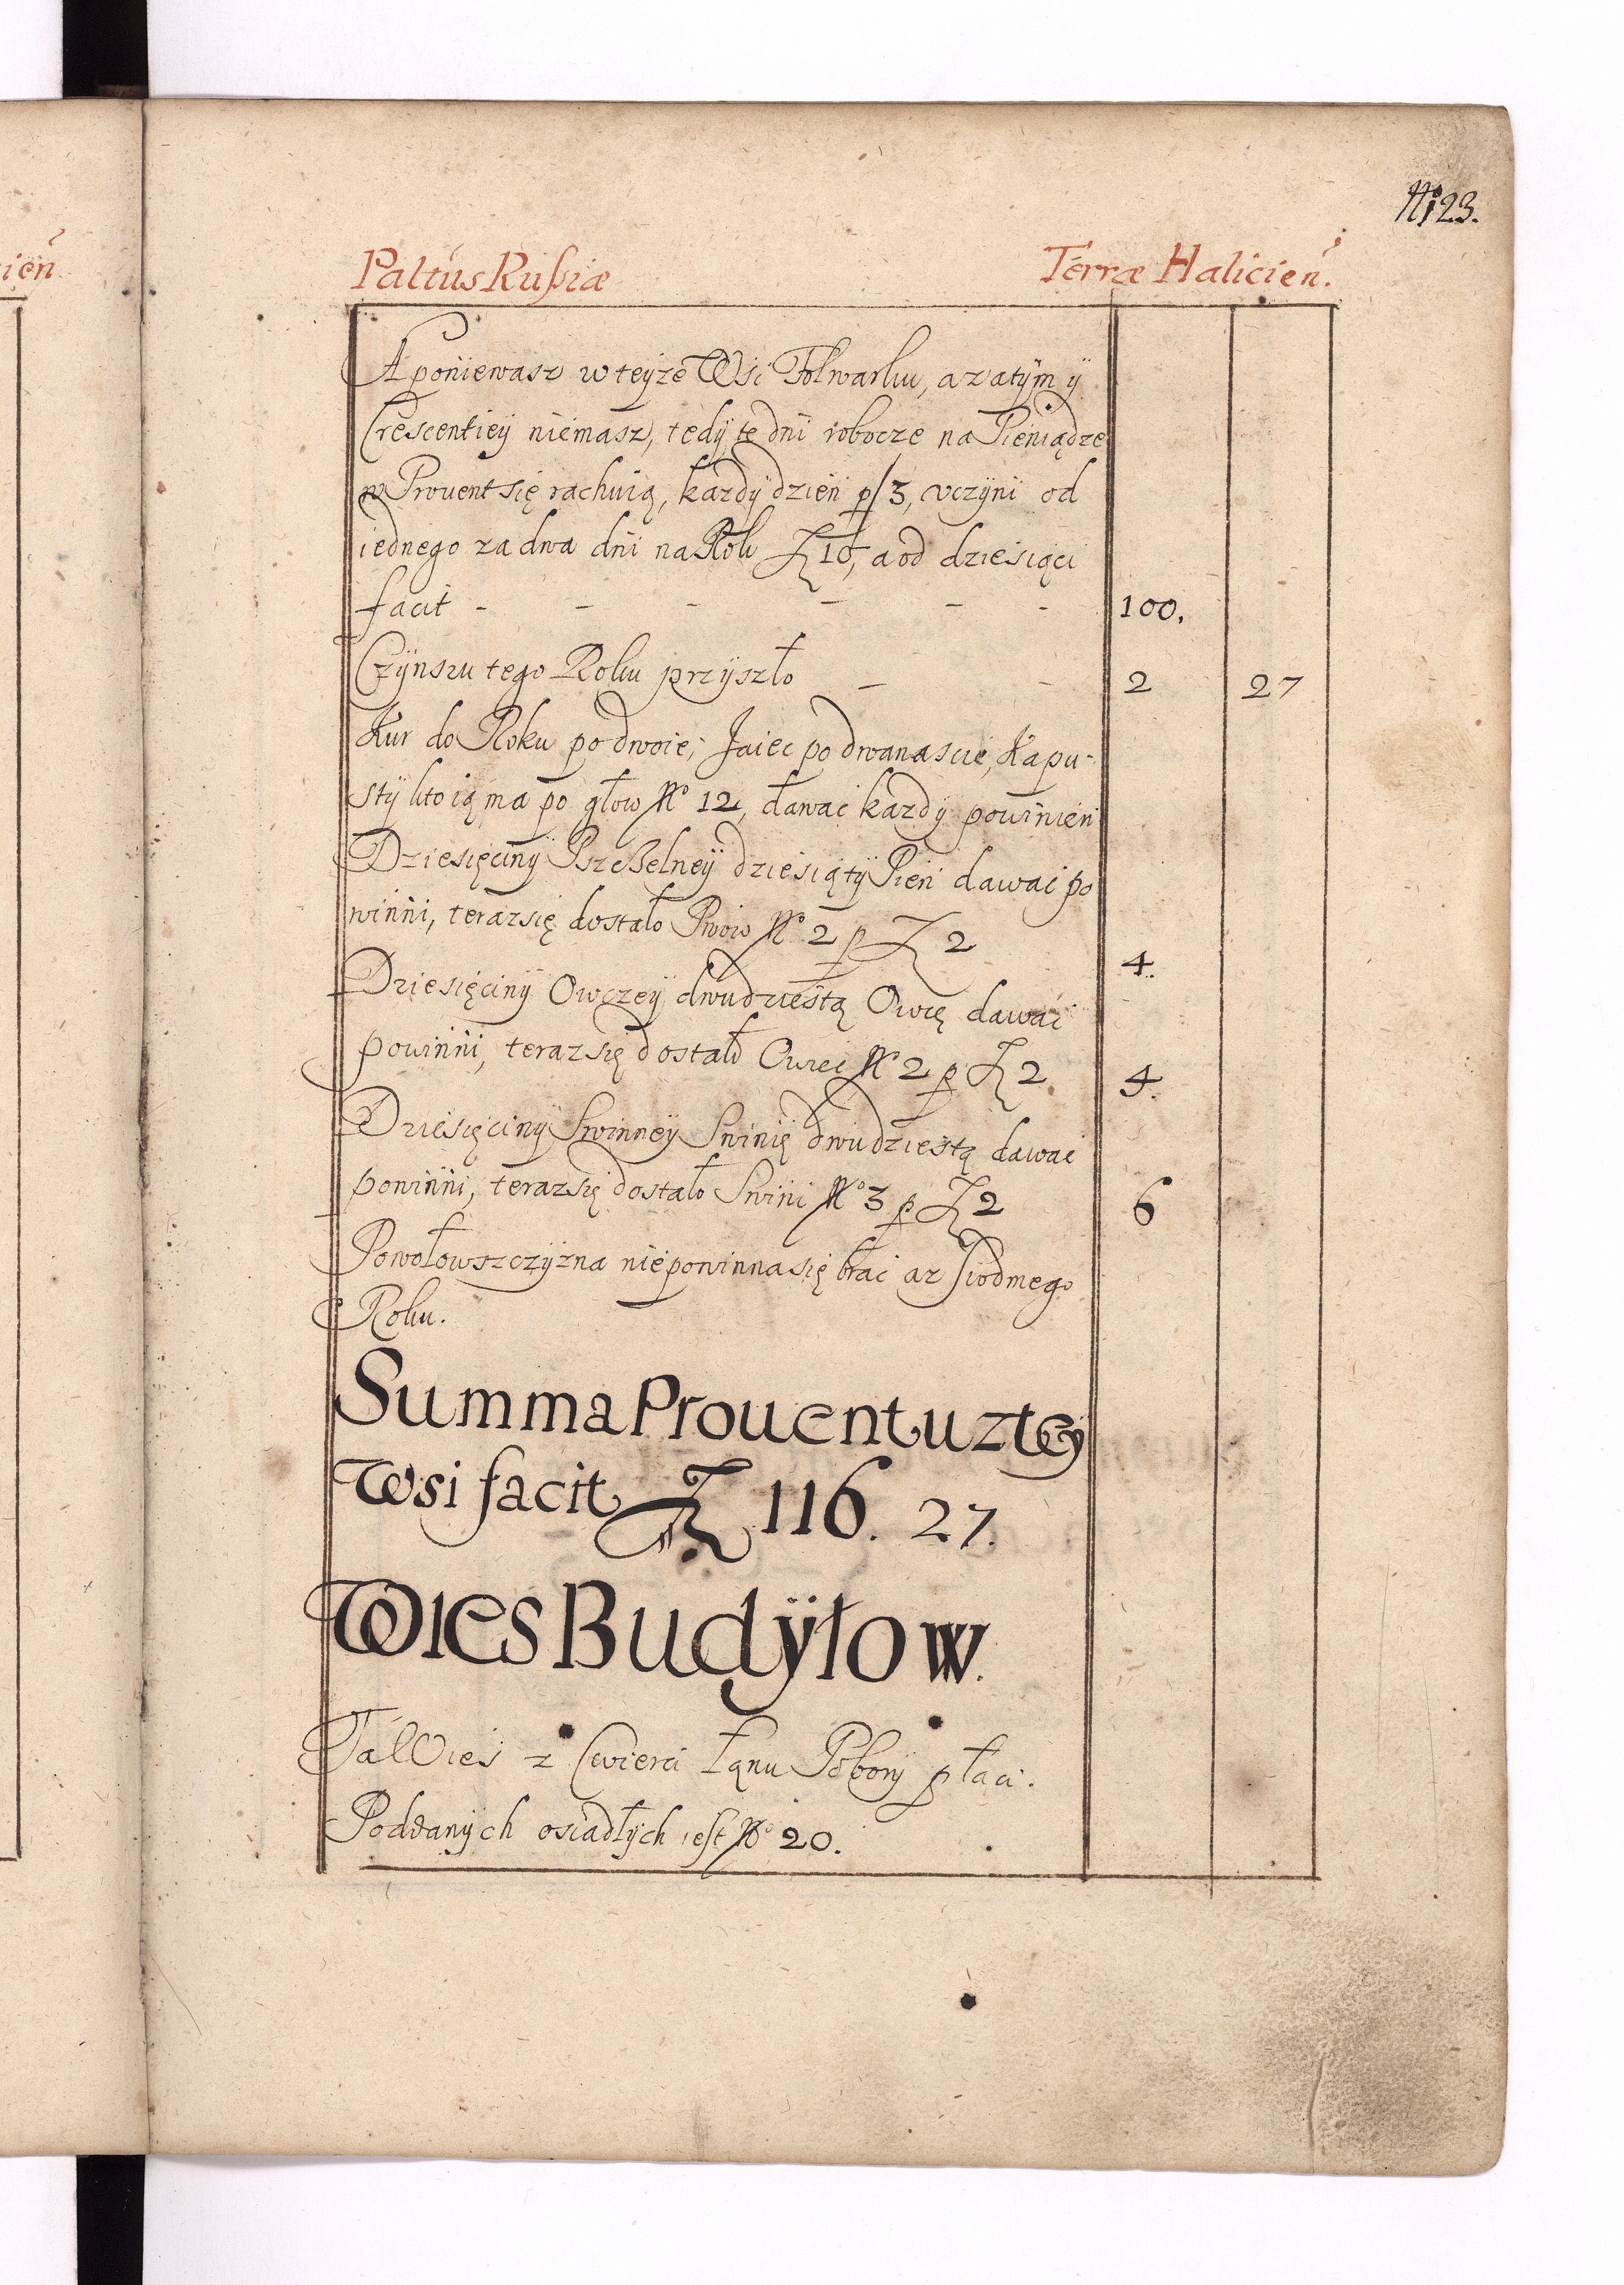 No 123.
ien
Paltus Russiæ Terræ Halicien.
A poniewasz w teyze Wsi Folwarku, a zatÿm ÿ
Crescentieÿ niemasz, tedÿ te dni robocze na Pieniądze
w Prouent się rachuią, kazdÿ dzien p/3, vczÿni od
iednego za dwa dni na Rok Zł 10, a od dziesiąci
facit - - - - - - 100.
Czÿnszu tego Roku przÿszło - - 2 27
Kur do Roku po dwoie, Jaiec po dwanascie, Kapu-
stÿ kto ią ma po głow No 12, dawać kazdÿ powinien
Dziesięcinÿ Pszczelneÿ dziesiątÿ Pień dawać po
winni, teraz się dostało Pniow No 2 p Zł 2 4.
Dziesięcinÿ Owczeÿ dwudziestą Owcę dawać
powinni, teraz się dostało Owiec No 2 p Zł 2 4.
Dziesięcinÿ Swinneÿ Swinię dwudziestą dawać
powinni, teraz się dostało Swini No 3 p Zł 2 6
Powołowszczÿzna niepowinna się brać az siodmego
Roku.
Summa Prouentu z teÿ
Wsi facit Zł 116. 27.
Wies Budÿłow.
Ta Wies z Cwierci Łanu Poborÿ płaci.
Poddanÿch osiadłÿch iest No 20.